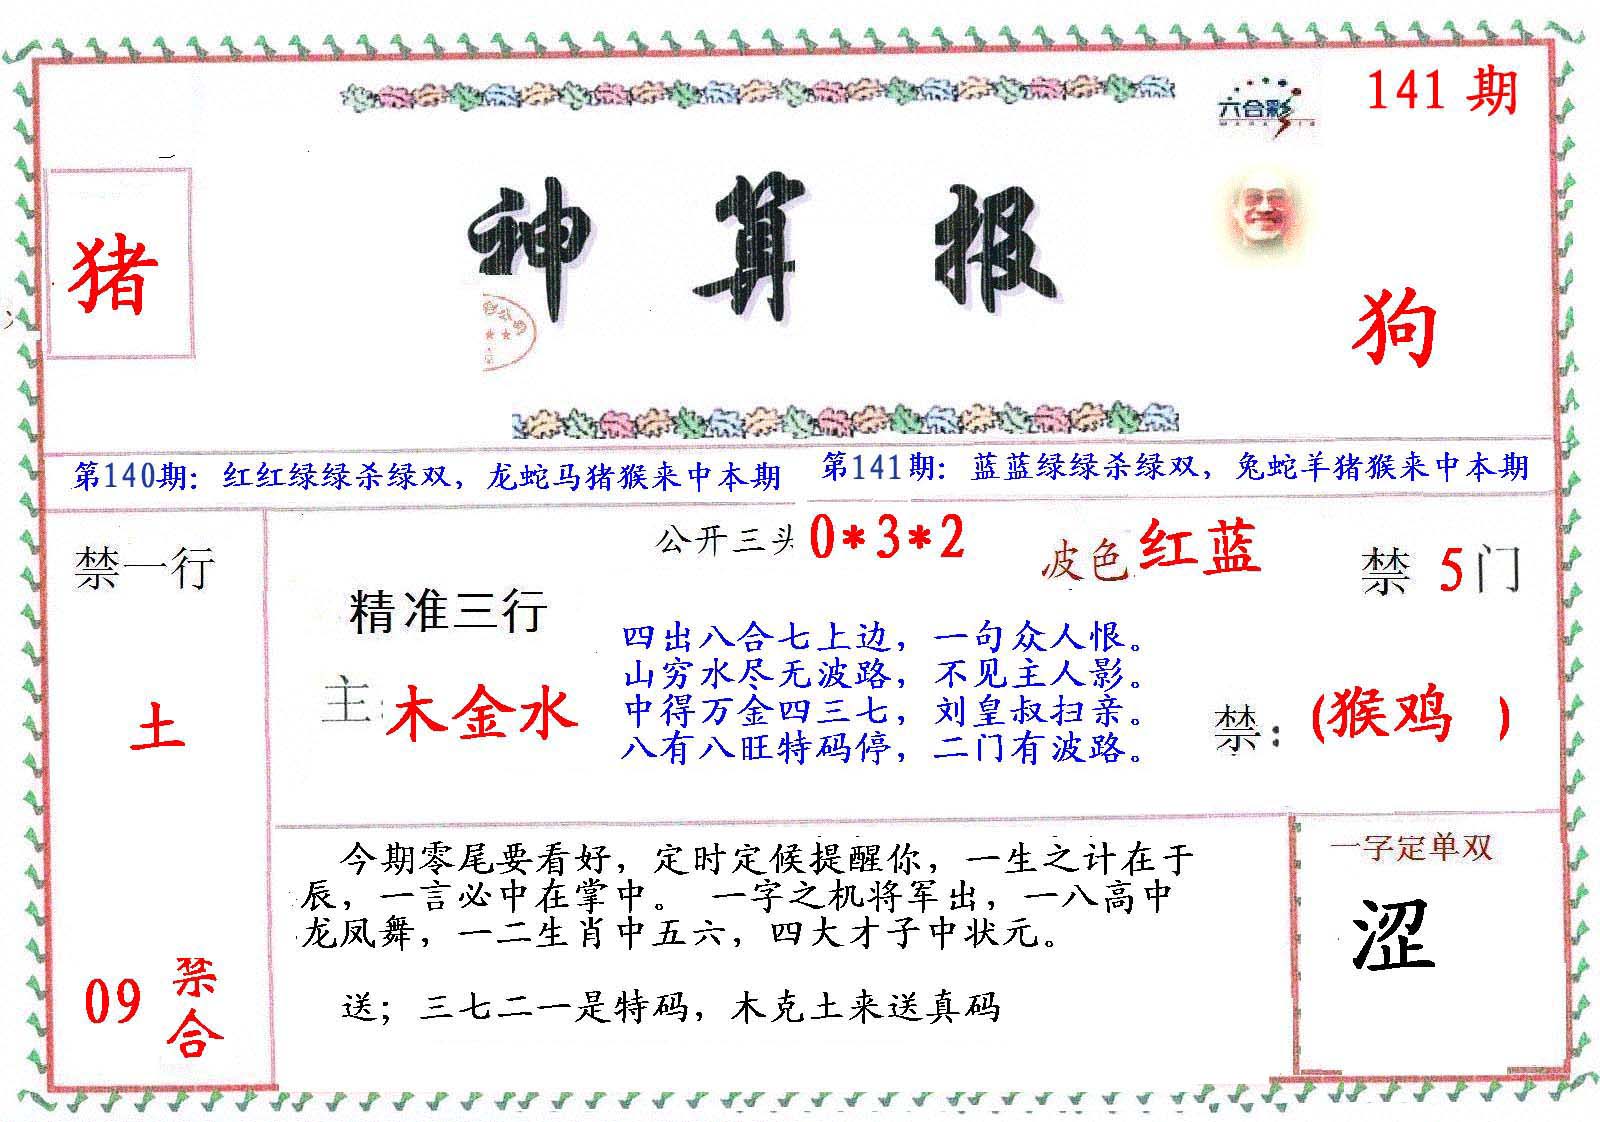 六合彩
141 期
猪
神算报
狗
第140期：红红绿绿杀绿双，龙蛇马猪猴来中本期
第141期：蓝蓝绿绿杀绿双，兔蛇羊猪猴来中本期
禁一行
土
09 禁合
公开三头 0*3*2
波色 红蓝
禁 5 门
精准三行
主: 木金水
四出八合七上边，一句众人恨。
山穷水尽无波路，不见主人影。
中得万金四三七，刘皇叔扫亲。
八有八旺特码停，二门有波路。
禁: (猴鸡 )
今期零尾要看好，定时定候提醒你，一生之计在于
辰，一言必中在掌中。 一字之机将军出，一八高中
龙凤舞，一二生肖中五六，四大才子中状元。
送；三七二一是特码，木克土来送真码
一字定单双
涩